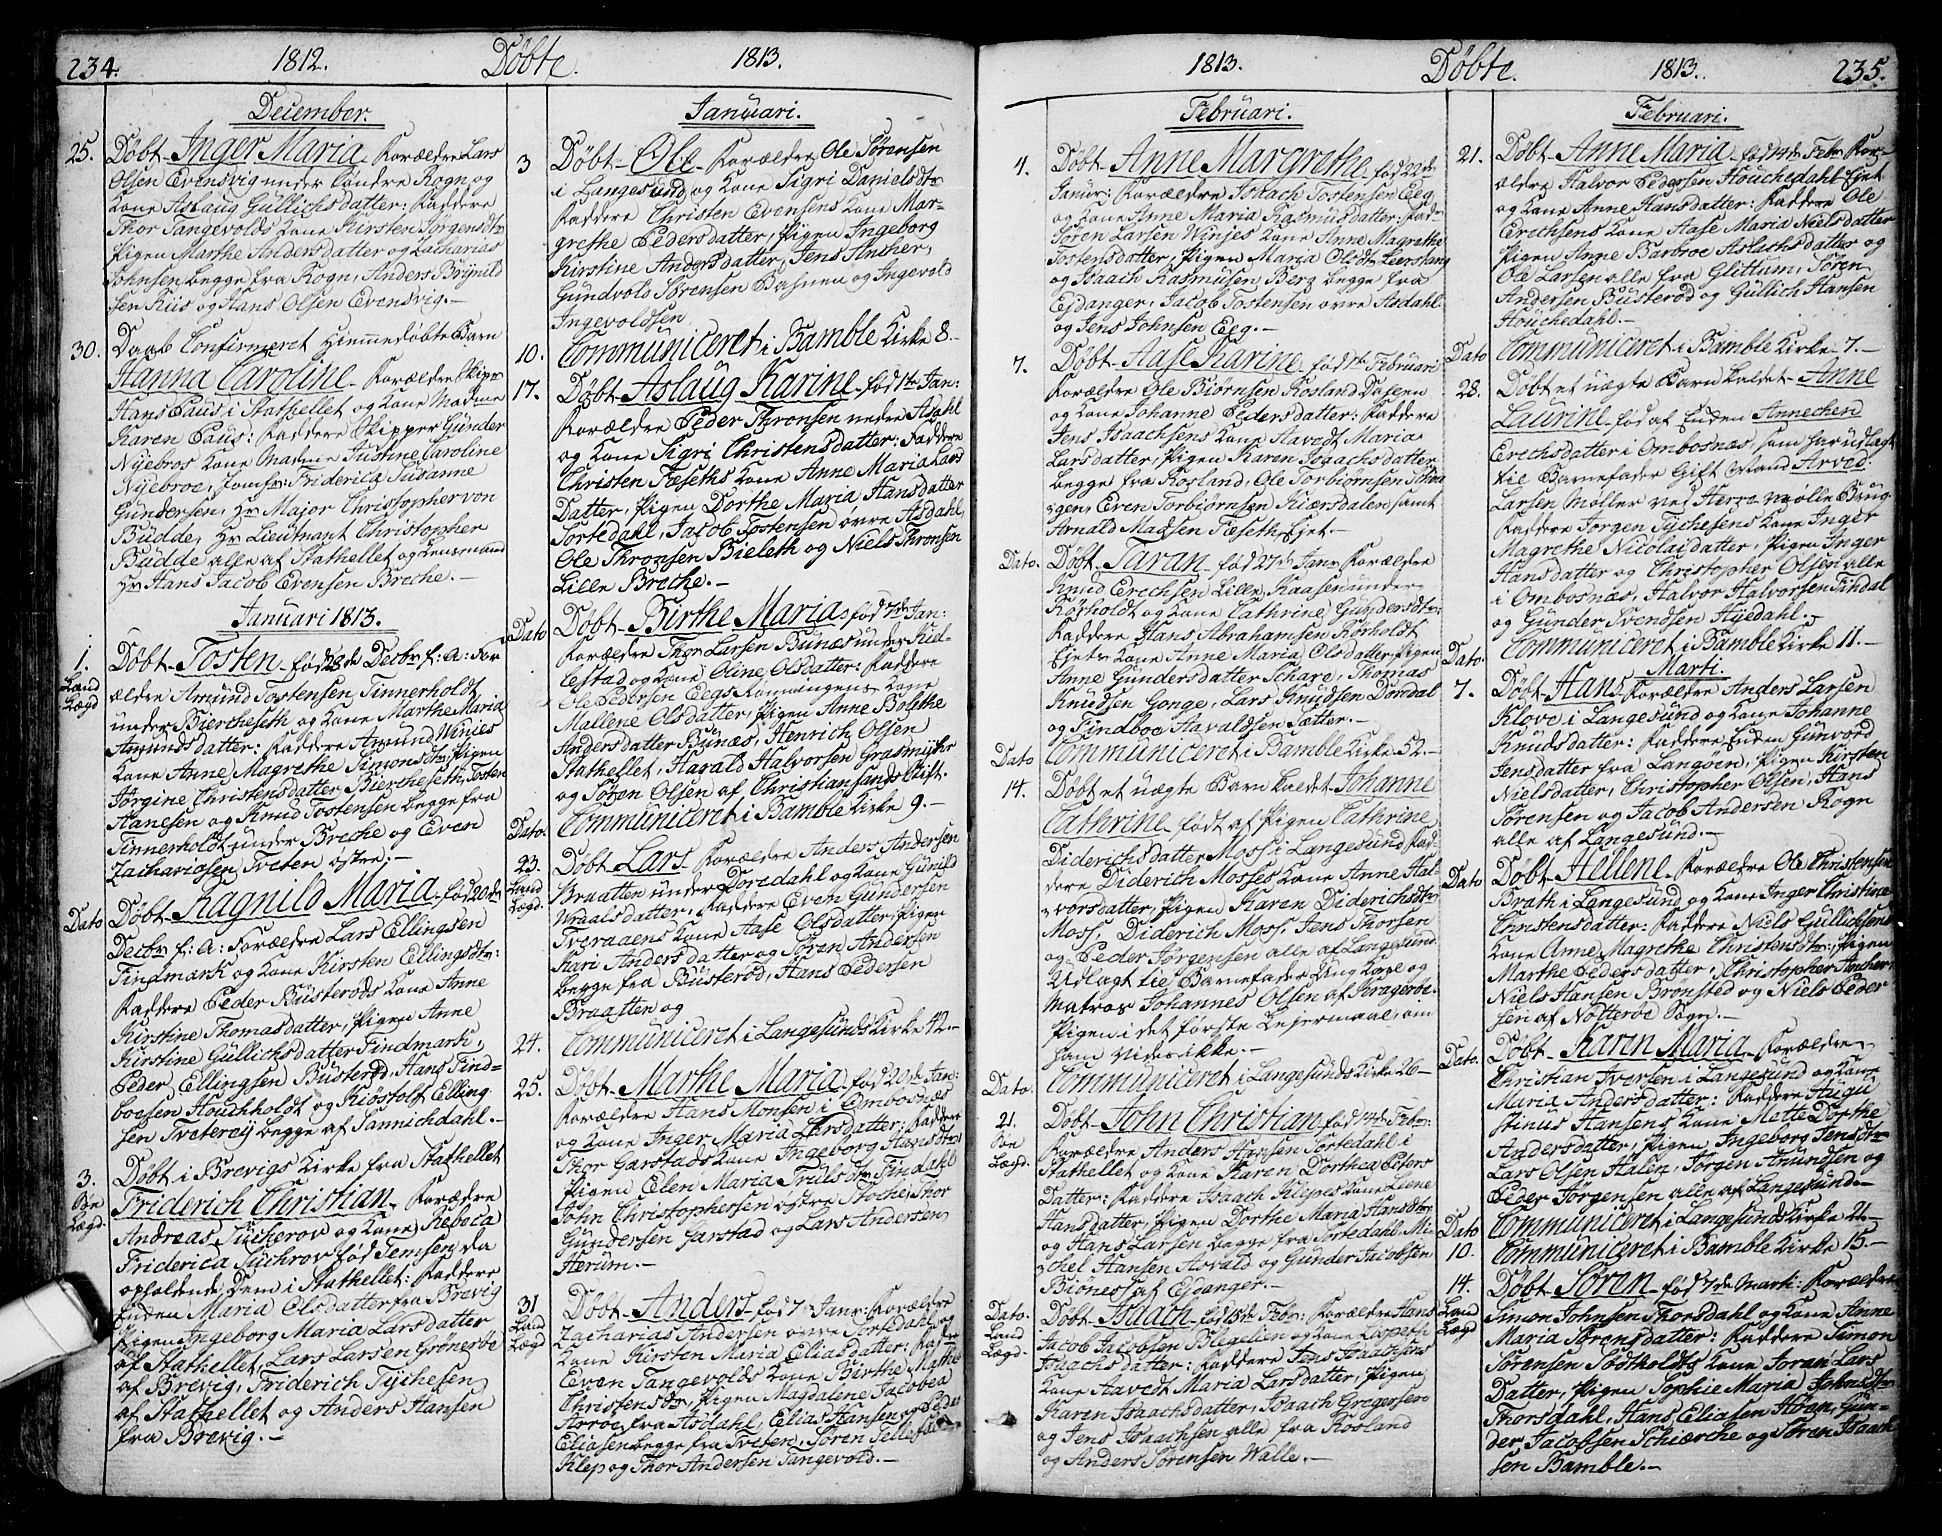 234. 1812. Døbte. 1813.
December.
25. Døbt Inger Maria Forældre Lars
Olsen Evensvig under Søndre Rogn og
Kone Aslaug Gullichsdatter: Faddere
Thor Tangevolds Kone Kirsten Jørgensdtr
Pigen Marthe Andersdatter og Zacharias
Johnsen begge fra Rogn, Anders Brynild
sen Riis og Hans Olsen Evensvig.
30. Daab Confirmeret Hiemmedøbte Barn
Hanna Caroline Forældre Skippr
Hans Paus i Stathellet og Kone Madme
Karen Paus: Faddere Skipper Gunder
Nyebros Kone Madme Justine Caroline
Nyebroe, Jomfr: Friderica Susanne
Gundersen, Hr Major Christopher von
Budde, Hr Lieutnant Christopher
Budde alle af Stathellet og Lensmand
Hr Hans Jacob Evensen Breche.
Januari 1813.
1. Døbt Tosten født 28de Decbr f: A: For
Land ældre Amund Tostensen Tinnerholdt
Lægd under Biercheseth og Kone Marthe Maria
Amundsdatter: Faddere Amund Winjes
Kone Anne Magrethe Simonsdtr, Pigen
Jørgine Christensdatter Biercheseth, Tosten
Hanesen og Knud Tostensen begge fra
Tinnerholdt under Breche og Even
Zachariasen Tveten østre.
Dato Døbt Ragnild Maria født 20de
Decbr f: A: Forældre Lars Ellingsen
Findmark og Kone Kirsten Ellingsdtr:
Faddere Peder Busterøds Kone Anne
Kirstine Thomasdatter, Pigen Anne
Kirstine Gullichsdatter Findmark,
Peder Ellingsen Busterød, Hans Find-
boesen Houchholdt og Kiøstolf Elling
sen Tveterøy begge af Sannichdahl.
3. Døbt i Brevigs Kirke fra Stathellet
Søe Friderich Christian Forældre
Lægd. Andreas Sucherov og Kone Reboca
Friderica Suchrov født Temsen da
opholdende Dem i Stathellet: Faddere
Enken Maria Olsdatter fra Brevig
Pigen Ingeborg Maria Larsdatter
af Stathellet, Lars Larsen Grønerøe
af Brevig, Friderich Tychesen
af Stathellet og Anders Hansen
fra Brevig.
Januari.
3 Døbt Ole Forældre Ole Sørensen
i Langesund og Kone Sigri Danielsdtr
Faddere Christen Evensens Kone Mar-
grethe Pedersdatter, Pigen Ingeborg
Kirstine Andersdatter, Jens Ancher,
Gundvold Sørensen Basnen og Ingevold
Ingevoldsen
10. Communiceret i Bamble Kirke 8.
17. Døbt Aslaug Karine født 1te Jan:
Forældre Peder Thronsen nedre Asdahl
og Kone Sigri Christensdatter: Faddere
Christen Fæseths Kone Anne Maria Lars
Datter, Pigen Dorthe Maria Hansdatter
Tortedahl, Jacob Tostensen øvre Asdahl,
Ole Thronsen Bieleth og Niels Thronsen
Lille Breche.
Dato Døbt Birthe Maria født 7de Jan:
Forældre Thor Larsen Bunæs under Kiel-
lestad og Kone Oline Olsdatter: Faddere
Ole Pedersen Eegs Kone
Mallene Olsdatter, Pigen Anne Bolethe
Andersdatter Bunæs, Henrich Olsen
Stathellet, Harald Halvorsen Grasmyhr
og Søren Olsen af Christiansands Stift.
Dato. Communiceret i Bamble Kirke 9.
23. Døbt Lars Forældre Anders Andersen
Land Braatten under Dordahl og Kone Gunild
Lægd. Wraalsdatter, Faddere Even Gundersen
Tveraaens Kone Aase Olsdatter, Pigen
Kari Andersdatter og Søren Andersen
begge fra Busterød, Hans Pedersen
Braatten og
24. Communiceret i Langesunds Kirke 42
25. Døbt Marthe Maria født 20de Jan:
Forældre Hans Monsen i Ombosnes
og Kone Inger Maria Larsdatter: Faddere
Thor Garstads Kone Ingeborg Hansdtr
Pigen Elen Maria Trulsdtr Findahl
John Christophersen østre Stoche, Thor
Gundersen Garstad og Lars Andersen
Herum.
31 Døbt Anders født 7 Janr: Forældre
Land Zacharias Andersen øvre Tortedahl og
Lægd Kone Kirsten Maria Eliasdatter: Faddre
Even Tangevolds Kone Birthe Mathea
Christensdtr, Pigen Magdalene Jacobea
Norøe fra Asdahl, Elias Hansen og Peder
Eliasen begge fra Tveten, Søren Tellefsen
Klep og Thor Andersen Tangevold.
1813. Døbte. 1813. 235.
Februari.
4. Døbt Anne Margrethe født 22de
Janur: Forældre Isaach Tostensen Eeg
og Kone Anne Maria Rasmusdatter: Fad-
Søren Larsen Winjes Kone Anne Magrethe
Tostensdatter, Pigen Maria Olsdtr Leerstang
og Isaach Rasmusen Berg begge fra
Ejdanger, Jacob Tostensen øvre Asdahl
og Jens Johnsen Eeg.
7. Døbt Aase Karine født 1te Februari
Forældre Ole Biørnsen Rosland Dalsen
og Kone Johanne Pedersdatter: Faddere
Jens Isaachsens Kone Aavedt Maria
Larsdatter, Pigen Karen Isaachsdatter
begge fra Rosland, Ole Torbiørnsen Tohna
gen, Even Torbiørnsen Kiærsdalen samt
Arnald Madsen Fæseth Ejet.
Dato. Døbt Taran født 27de Janr Forældre
Knud Erechsen Lille Kaasen under
Rørholdt og Kone Cathrine Gundersdtr:
Faddere Hans Abrahamsen Rørholdt
Ejets Kone Anne Maria Olsdatter, Pigen
Anne Gundersdatter Schare, Thomas
Knudsen Gonge, Lars Knudsen Dordal
og Findboe Aavaldsen Sætter.
Dato Communiceret i Bamble Kirke 52.
14. Døbt et uægte Barn kaldet Johanne
Cathrine født af Pigen Cathrine
Diderichsdatter Moss i Langesund Fad-
dere Diderich Mosses Kone Anne Hal-
vorsdatter, Pigen Karen Diderichsdtr
Moss, Diderich Moss, Jens Thorsen
og Peder Jørgensen alle af Langesund
Udlagt til Barnefader Ung Karl og
Matros Johannes Olsen af Kragerøe.
Pigen i det første Lejermaal, om
ham vides ikke.
Dato. Communiceret i Langesunds Kirke 26
21. Døbt John Christian født 14de Febr:
Søe Forældre Anders Hansen Tortedahl i
Lægd. Stathellet og Kone Karen Dorthea Peders
Datter: Faddere Isaach Klepes Kone Leene
Hansdatter, Pigen Dorthe Maria Hansdtr
og Hans Larsen begge fra Tortedahl, Mi-
chel Hansen Hovald og Gunder Jacobsen
Biønes af Ejdanger.
Dato. Døbt Isaach født 18de Febr: Forældre Hans
Land Jacob Jacobsen Blegelien og Kone Lispeth
Lægd. Isaachsdatter: Faddere Jens Isaachsens
Kone Aavedt Maria Larsdatter, Pigen
Karen Isaachsdatter, Isaach Gregersen
og Jens Isaachsen alle fra Rosland
og Anders Sørensen Walle.
Februari.
21. Døbt Anne Maria født 14de Febr For-
ældre Halvor Pedersen Houchedahl Ejet
og Kone Anne Hansdatter: Faddere Ole
Erechsens Kone Aase Maria Nielsdatter
Pigen Anne Barbroe Aslachsdatter og
Ole Larsen alle fra Glittum, Søren
Andersen Busterød og Gullich Hansen
Houchedahl.
Dato Communiceret i Bamble Kirke 7.
28. Døbt et uægte Barn kaldet Anne
Laurine født af Enken Annechen
Erechsdatter i Ombosnæs, som har udlagt
til Barnefader Gift Mand Arved
Larsen Møller ved Herre Mølle Brug
Faddere Jørgen Tychesens Kone Inger
Magrethe Nicolaidatter, Pigen Inger
Hansdatter og Christopher Olsen alle
i Ombosnæs, Halvor Halvorsen Findal
og Gunder Svendsen Hyedahl.
Dato. Communiceret i Bamble Kirke 11.
Marti.
7. Døbt Hans Forældre Anders Larsen
Klove i Langesund og Kone Johanne
Knudsdatter: Faddere Enken Gunvord
Jensdatter fra Langøen, Pigen Kirsten
Nielsdatter, Christopher Olsen, Hans
Sørensen og Jacob Andersen Rogn
alle af Langesund.
Dato Døbt Hellene Forældre Ole Christensen
Brath i Langesund og Kone Inger Christine
Christensdatter: Faddere Niels Gullichsens
Kone Anne Magrethe Christensdtr, Pigen
Marthe Pedersdatter, Christopher Ancher,
Niels Hansen Brønsted og Niels Peder
sen af Nøtterøe Sogn.
Dato. Døbt Karen Maria Forældre
Christian Iversen i Langesund og Kone
Maria Andersdatter: Faddere Augu
stinus Hansens Kone Mette Dorthe
Andersdatter, Pigen Ingeborg Jensdtr
Lars Olsen Halen, Jørgen Amundsen og
Peder Jørgensen alle af Langesund.
Dato Communiceret i Langesunds Kirke 21
10. Communiceret i Bamble Kirke 15.
14. Døbt Søren født 7de Marti: Forældre
Land Simon Johnsen Thorsdahl og Kone Anne
Lægd Maria Sørensdatter: Faddere Simon
Sørensen Södtholdts Kone Joran Lars
Datter, Pigen Sophie Maria Johnsdtr
Thorsdahl, Hans Eliasen Hoen, Gun-
der Jacobsen Schierche og Søren Isaach
sen Bamble.